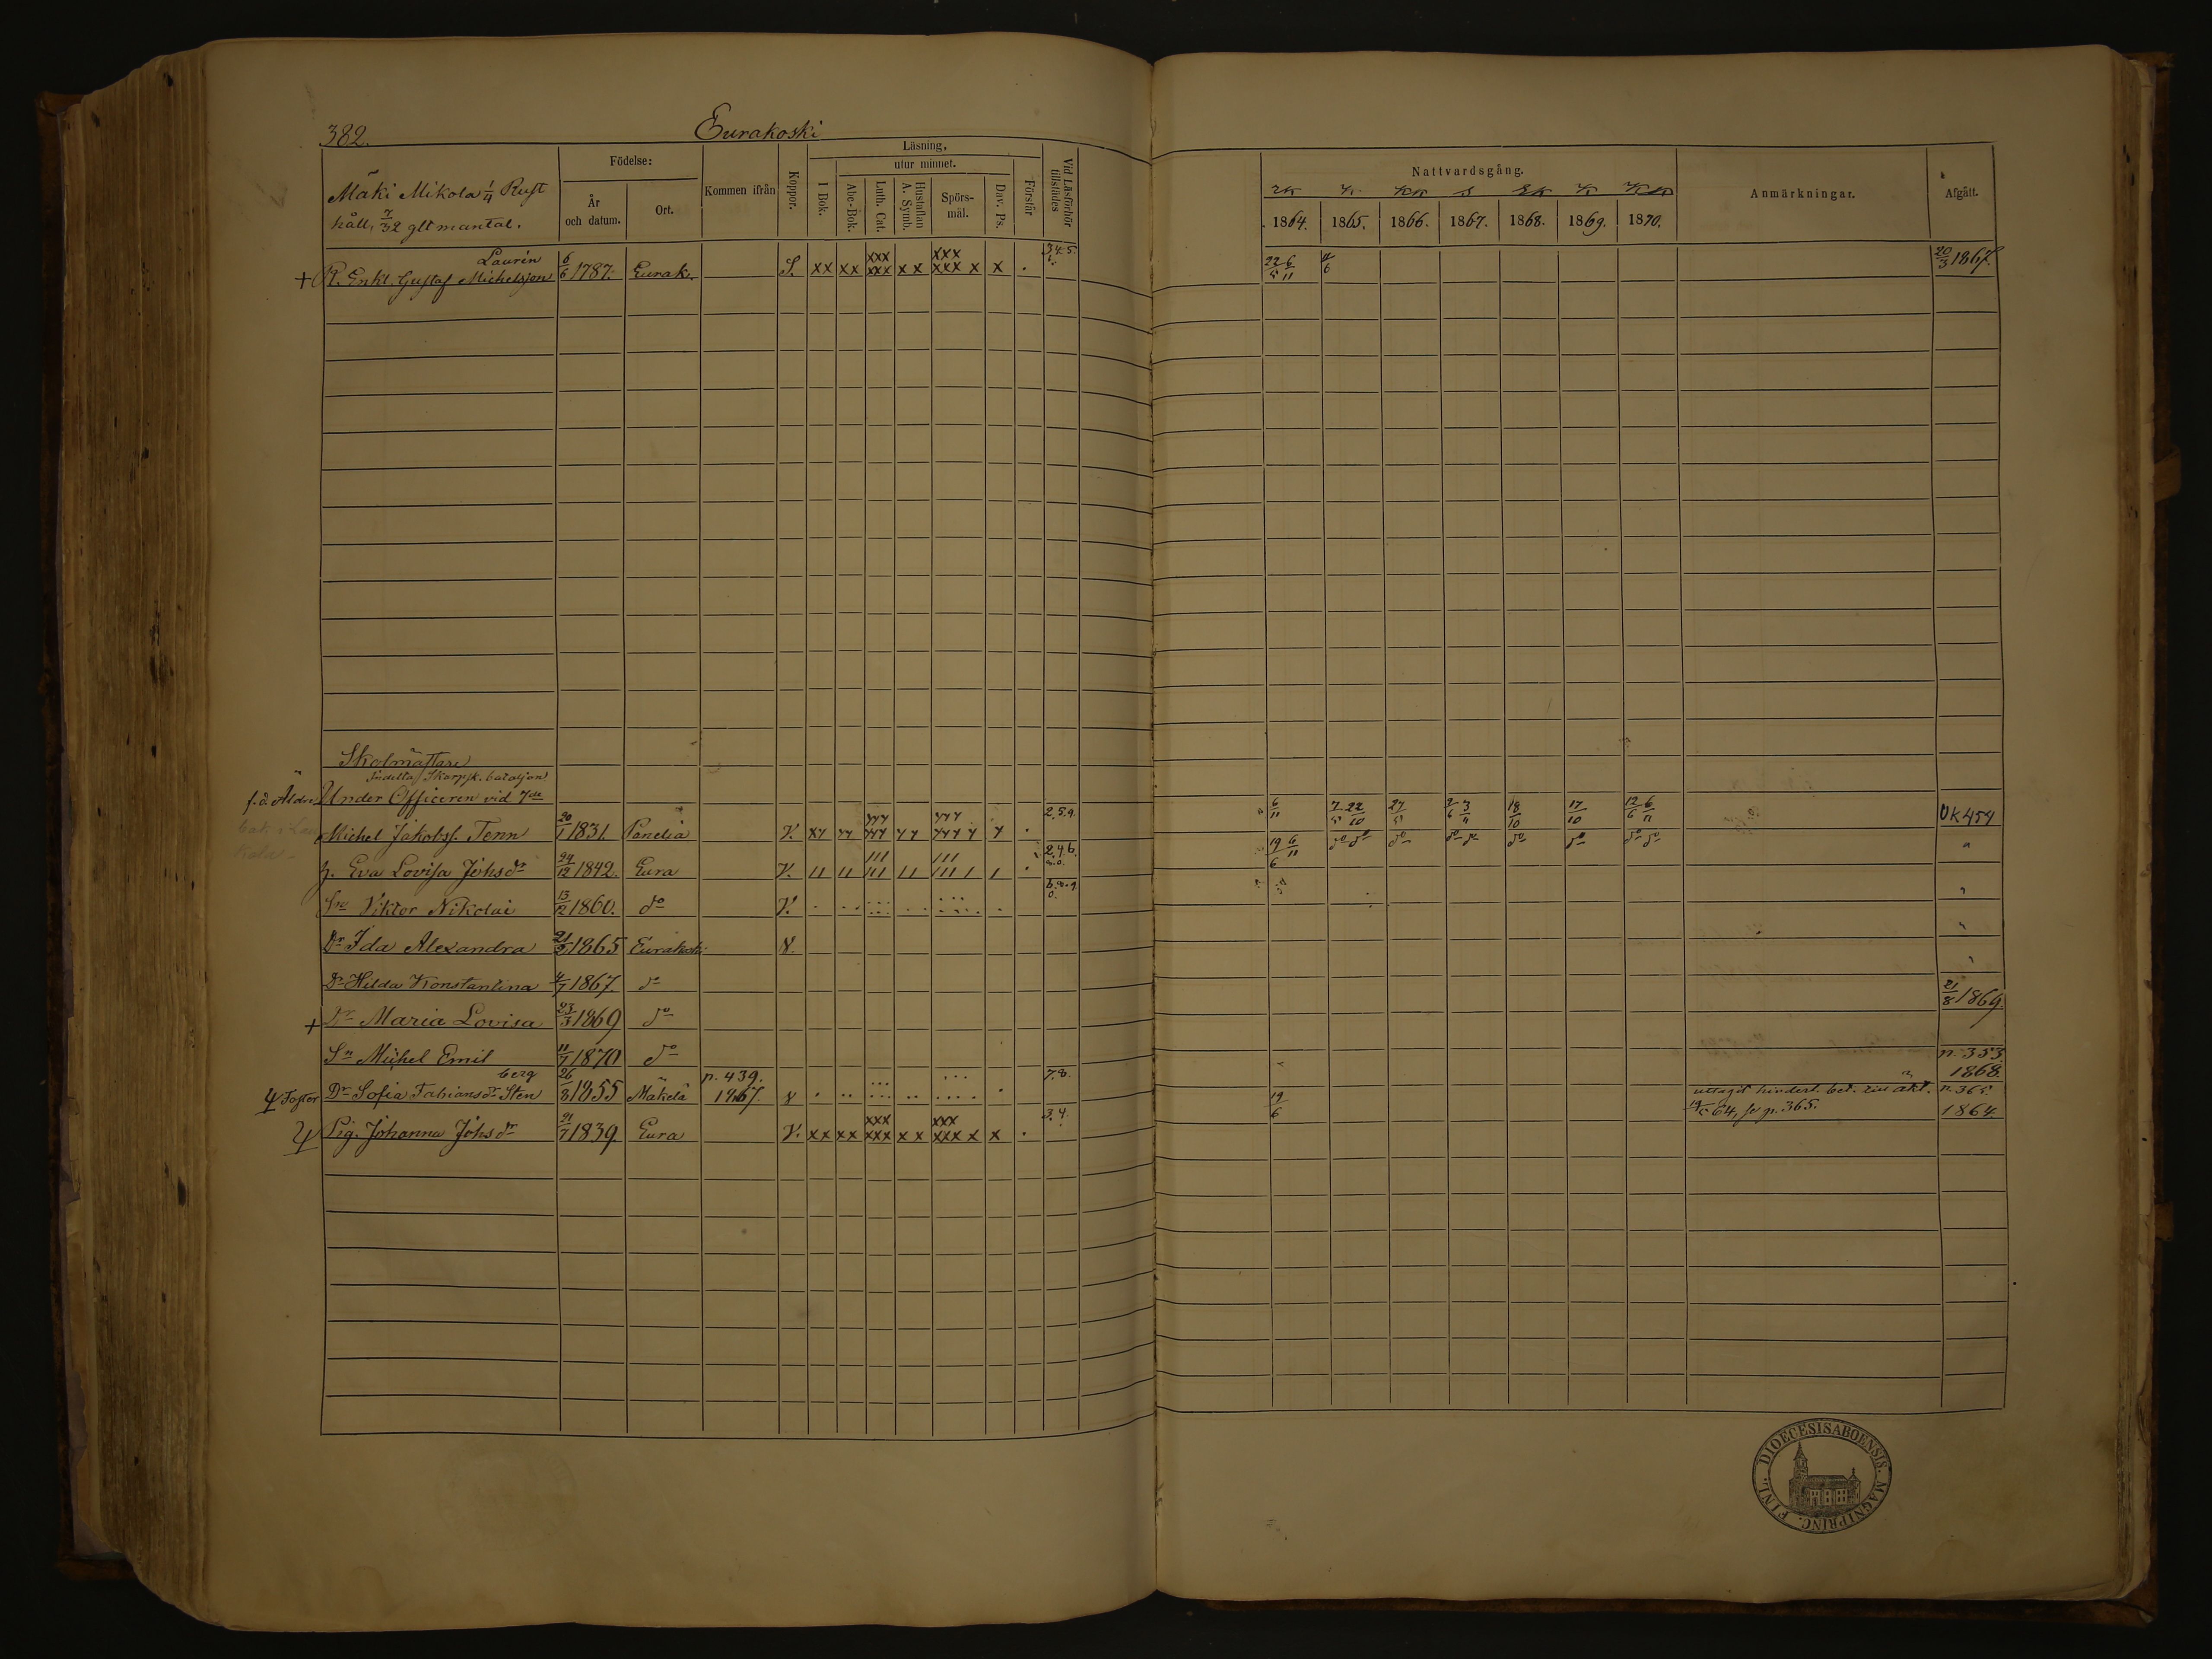 382.
Eurakoski
Mäki Mikola 1/4 Rust
håll, 7/32 glt mantal.
Födelse:
År och datum.
Ort.
Kommen ifrån
Koppor.
Läsning,
utur minnet.
I Bok.
Abc-Bok.
Luth. Cat.
Hustaflan A. Symb.
Spörs-mål.
Dav. Ps.
Förstår
Vid Läsförhör tillstädes
Nattvardsgång.
1864. 1865. 1866. 1867. 1868. 1869. 1870.
Anmärkningar.
Afgått.
Laurén
+ R. Enkl. Gustaf Michelsson 6/6 1787. Eurak. S. xx xx xxx xxx xx xxx xxx x x . 3.4.5. 22/5 6/11 20/3 1867.
Skolmästare
Indelta Skarpsk. bataljon
f.d. Äldre Under Officeren vid 7de
Michel Jakobss. Tenn 20/1 1831. Panelia V. 2.5.9. 6/11 22/10 27/5 18/10 17/10 12/6 6/11 UK 454
h. Eva Lovisa Johsdr 24/12 1842. Eura V. 2.4.6. 19/6 6/11 do do do do do do do do do "
Sn Viktor Nikolai 13/12 1860. do V. "
Dr Ida Alexandra 21/3 1865 Eurakoski v. "
Dr Hilda Konstantina 4/7 1867 do "
+ Dr Maria Lovisa 23/3 1869 do 21/8 1869.
Sn Michel Emil 11/7 1870 do
berg
Foster Dr Sofia Fabiansdr Sten 26/8 1855 Mäkelä p. 439. 1867. v 7.8. p. 353. 1868.
Pig. Johanna Johsdr 21/7 1839. Eura V. xx xx xxx xxx xx xxx xxx x x . 3.4. 19/6 uttagit hinderl. bet. till äkt. 19/5 64, se p. 365. p. 365. 1864.
FINL. DIOECESIS ABOENSIS. MAGNI PRINC.